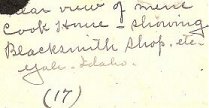 view of mine
Cook House - showing
Blacksmith Shop, etc.
Idaho.
(17)